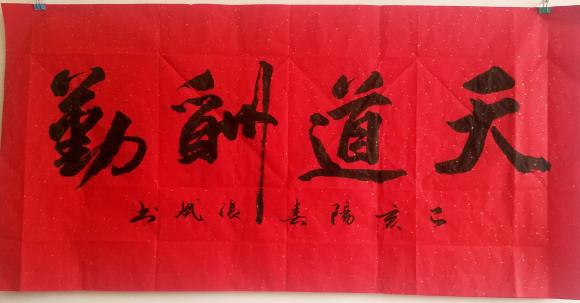 天道酬勤
己亥陽春張斌书